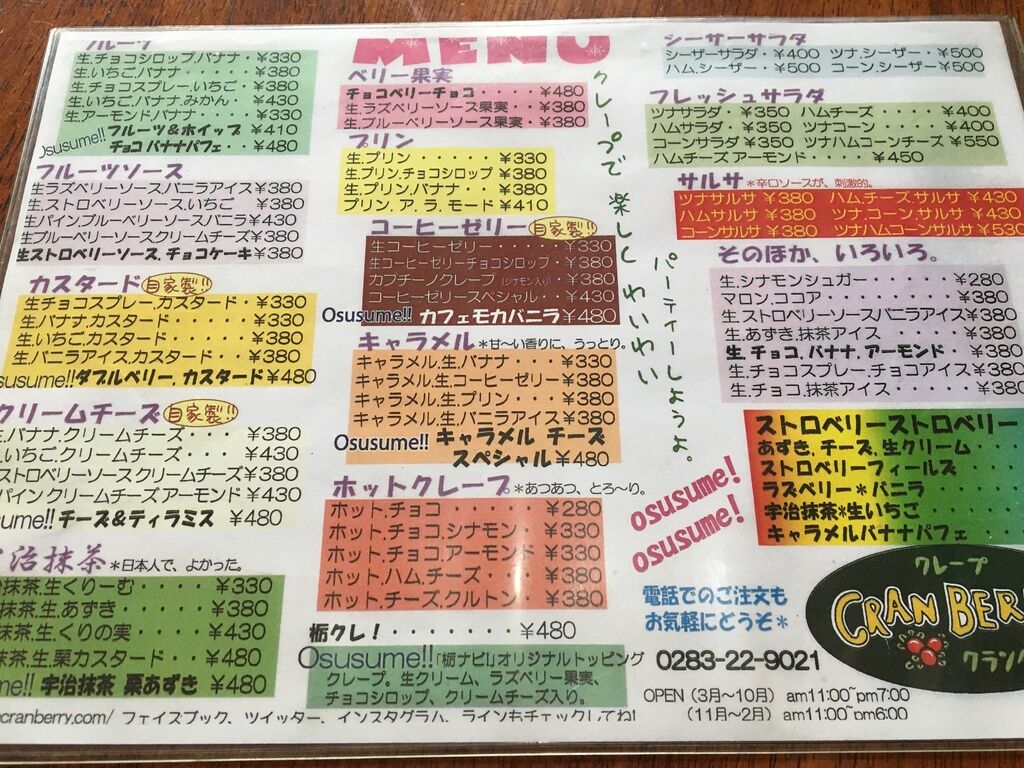 MENU
フルーツ
生.チョコシロップ.バナナ・¥330
生.いちご.バナナ・・・・・¥380
生.チョコスプレー.いちご・¥380
生.いちご.バナナ.みかん・¥430
生.アーモンドバナナ・・・¥330
Osusume!! フルーツ&ホイップ ¥410
チョコ バナナパフェ・・¥480
フルーツソース
生ラズベリーソースバニラアイス¥380
生.ストロベリーソース.いちご ¥380
生パイン.ブルーベリーソースバニラ¥430
生ブルーベリーソースクリームチーズ¥380
生ストロベリーソース.チョコケーキ¥380
カスタード 自家製!!
生チョコスプレー.カスタード・¥330
生.バナナ.カスタード・・・・・¥330
生.いちご.カスタード・・・・・¥380
生.バニラアイス.カスタード・¥380
susume!!ダブルベリー.カスタード¥480
クリームチーズ 自家製!!
生.バナナ.クリームチーズ・・・ ¥380
.いちご.クリームチーズ・・・ ¥430
ストロベリーソースクリームチーズ¥380
パイン クリームチーズ アーモンド ¥430
ume!! チーズ&ティラミス ¥480
治抹茶 *日本人で、よかった。
抹茶.生くりーむ・・・・・¥330
抹茶.生.あずき・・・・・・¥380
抹茶.生.くりの実・・・・・¥430
抹茶.生.栗カスタード・・・¥480
me!! 宇治抹茶 栗あずき ¥480
ベリー果実
チョコベリーチョコ・・・¥480
生.ラズベリーソース果実・・¥380
生.ブルーベリーソース果実・¥380
プリン
生.プリン・・・・・・¥330
生.プリン.チョコシロップ ¥380
生.プリン.バナナ・・¥380
プリン.ア.ラ.モード¥410
コーヒーゼリー 自家製!!
生コーヒーゼリー・・・・・¥330
生コーヒーゼリーチョコシロップ・¥380
カプチーノクレープ(シナモン入り)¥380
コーヒーゼリースペシャル・・¥430
Osusume!! カフェモカバニラ ¥480
キャラメル *甘〜い香りに、うっとり。
キャラメル.生.バナナ・・¥330
キャラメル.生.コーヒーゼリー¥380
キャラメル.生.プリン・・¥380
キャラメル.生.バニラアイス¥380
Osusume!! キャラメル チーズ
スペシャル ¥480
ホットクレープ *あつあつ、とろ〜り。
ホット.チョコ・・・・・¥280
ホット.チョコ.シナモン・¥330
ホット.チョコ.アーモンド ¥330
ホット.ハム.チーズ・・・¥380
ホット.チーズ.クルトン・¥380
栃クレ!・・・・・・・¥480
Osusume!!「栃ナビ!」オリジナルトッピング
クレープ。生クリーム、ラズベリー果実、
チョコシロップ、クリームチーズ入り。
クレープで楽しくわいわい
パーティーしようよ。
シーザーサラダ
シーザーサラダ・¥400 ツナ.シーザー・¥500
ハム.シーザー・¥500 コーン.シーザー¥500
フレッシュサラダ
ツナサラダ・¥350 ハムチーズ ¥400
ハムサラダ・¥350 ツナコーン・・・・¥400
コーンサラダ¥350 ツナハムコーンチーズ ¥550
ハムチーズ アーモンド・・・・¥450
サルサ *辛口ソースが、刺激的。
ツナサルサ ¥380 ハム.チーズ.サルサ ¥430
ハムサルサ ¥380 ツナ.コーン.サルサ ¥430
コーンサルサ ¥380 ツナハムコーンサルサ ¥530
そのほか、いろいろ。
生.シナモンシュガー・・・・・¥280
マロン.ココア・・・・・・・・¥380
生.ストロベリーソースバニラアイス¥380
生.あずき.抹茶アイス・・・・¥380
生.チョコ.バナナ.アーモンド・¥380
生.チョコスプレー.チョコアイス¥380
生.チョコ.抹茶アイス・・・・¥380
ストロベリーストロベリー
あずき.チーズ.生クリーム・
ストロベリーフィールズ・・・
ラズベリー*バニラ・・・・
宇治抹茶*生いちご・・・・
キャラメルバナナパフェ・・
osusume!
osusume!
電話でのご注文も
お気軽にどうぞ*
0283-22-9021
OPEN (3月〜10月) am11:00~pm7:00
(11月〜2月) am11:00~pm6:00
クレープ
CRAN BER
クラン
cranberry.com/ フェイスブック、ツイッター、インスタグラム、ラインもチェックしてね!